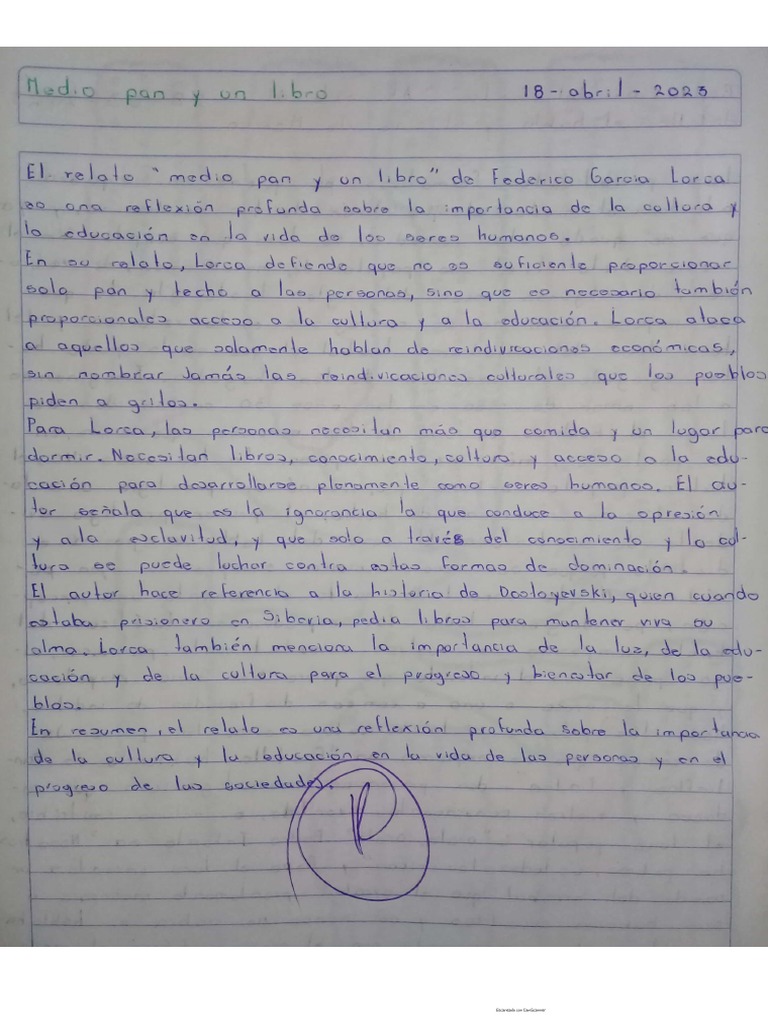 Medio pan y un libro 18-abril-2023
El relato "medio pan y un libro" de Federico Garcia Lorca
es una reflexión profunda sobre la importancia de la cultura y
la educación en la vida de los seres humanos.
En su relato, Lorca defiende que no es suficiente proporcionar
solo pan y techo a las personas, sino que es necesario también
proporcionales acceso a la cultura y a la educación. Lorca ataca
a aquellos que solamente hablan de reindivicaciones económicas,
sin nombrar Jamás las reindivicaciones culturales que los pueblos
piden a gritos.
Para Lorca, las personas necesitan más que comida y un lugar para
dormir. Necesitan libros, conocimiento, cultura y acceso a la edu-
cación para desarrollarse plenamente como seres humanos. El au-
tor señala que es la ignorancia la que conduce a la opresión
y a la esclavitud, y que solo a través del conocimiento y la cul-
tura se puede luchar contra estas formas de dominación.
El autor hace referencia a la historia de Dostoyevski, quien cuando
estaba prisionero en Siberia, pedia libros para mantener viva su
alma. Lorca también menciona la importancia de la luz, de la edu-
cación y de la cultura para el progreso y bienestar de los pue-
blos.
En resumen, el relato es una reflexión profunda sobre la importancia
de la cultura y la educación en la vida de las personas y en el
progreso de las sociedades.
Escaneado con CamScanner